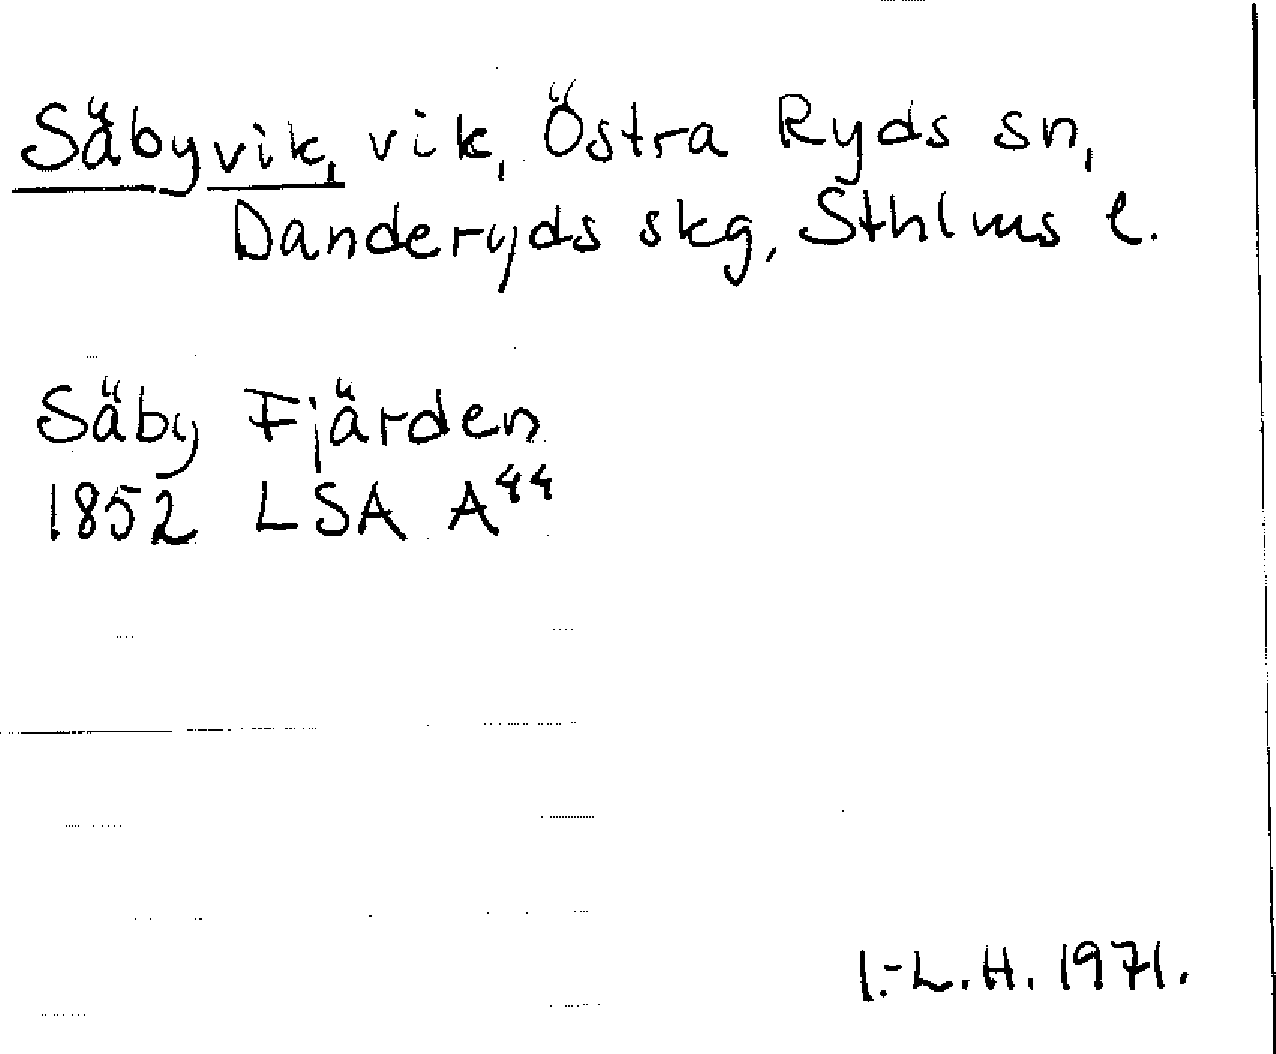 Säbyvik, vik, Östra Ryds sn,
Danderyds skg, Sthlms l.
Säby Fjärden
1852 LSA A⁴⁴
I.-L.H. 1971.